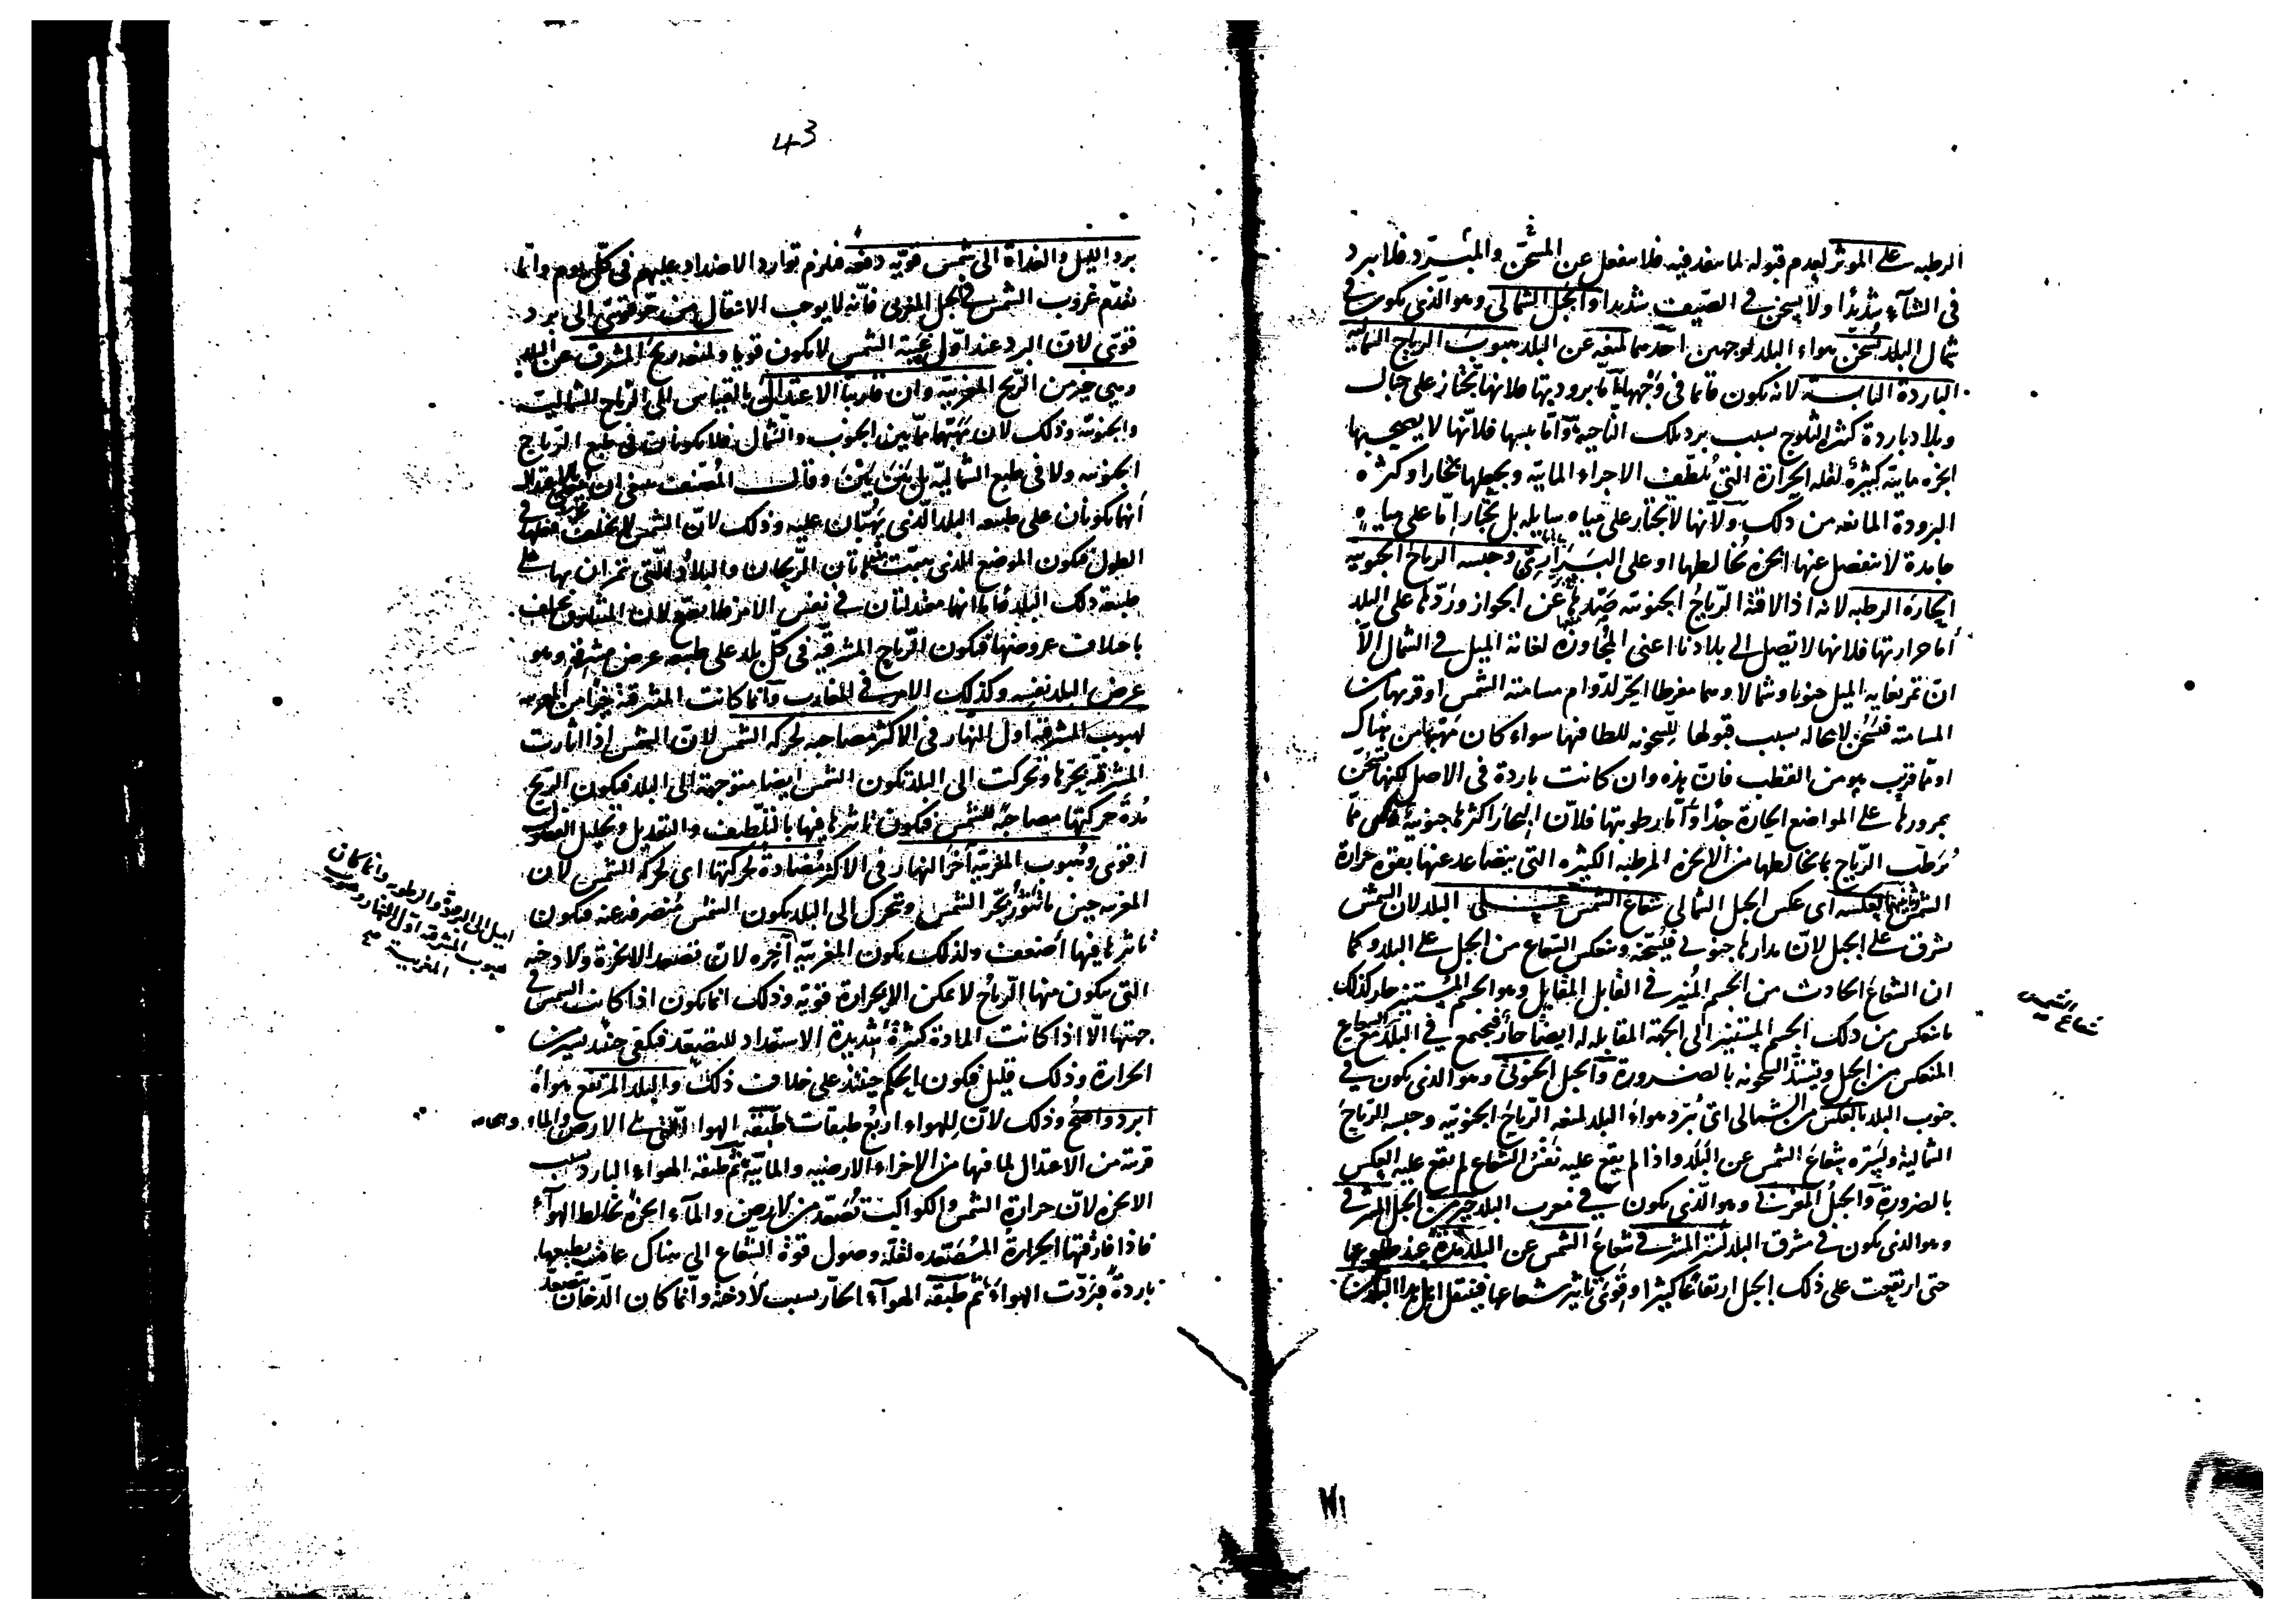 الرطبه على الموثر لعدم قبوله لما ينفذ فيه فلا ينفعل عن المسخّن والمبرّد فلا يبرد
فى الشتآء شديدًا ولا يسخن فى الصيف شديدا والجبل الشمالى وهو الذى يكون فى
شمال البلد يُسخن هواء البلد لوجهين احدهما لمنعه عن البلد هبوب الرياح الشماليّه
الباردة اليابسة لانه يكون قائما فى وجهها امّا برودتها فلانها تجتاز على جبال
وبلاد باردة كثيرة الثلوج بسبب برد تلك الناحية وامّا يبسها فلانّها لا يصحبها
ابخرة مايّة كثيرة لقله الحرارة التى تُلطّف الاجزاء المائيّه ويجعلها بخارا وكثرة
البرودة المانعه من ذلك ولانها لا تجتاز على مياه سايله بل تجتاز امّا على مياه
جامدة لا ينفصل عنها ابخرة تخالطها او على البرارى وحبسه الرياح الجنوبيه
الحارة الرطبه لانه اذا لاقته الرياح الجنوبيّه صدّها عن الجواز وردّها على البلد
أما حرارتها فلانها لا تصل الى بلادنا اعنى المجاوزة لغاية الميل فى الشمال الّا
ان تمر بغايه الميل جنوبا وشمالا وهما مفرطا الحرّ لدوام مسامتة الشمس او قربها من
المسامتة فتسخن لا محاله بسبب قبولها للسخونه للطافتها سواء كان مهبّها من هناك
او ممّا قرب هو من القطب فانّ هذه وان كانت باردة فى الاصل لكنها تسخن
بمرورها على المواضع الحارة جدًا وامّا رطوبتها فلانّ البحار اكثرها جنوبية وهى ممّا
يُرَطّب الرياح بما يخالطها من الابخرة المرطبه الكثيره التى يتصاعد عنها بقوه حرارة
الشمس فيها ولعكسه اى عكس الجبل الشمالى شعاع الشمس على البلد لان الشمس
تشرق على الجبل لانّ مدارها جنوبى فيُسخّنه وينعكس الشعاع من الجبل على البلد وكما
ان الشعاع الحادث من الجسم المُنير فى القابل المقابل وهو الجسم المستنير حار كذلك
ما ينعكس من ذلك الجسم المستنير الى الجهة المقابله له ايضًا حار فيجتمع فى البلد مع الشعاع
شعاع الشمس
المنعكس من الجبل ويشتدّ السخونه بالضرورة والجبل الجنوبى وهو الذى يكون فى
جنوب البلد بالعكس من الشمالى اى يُبرّد هواء البلد لمنعه الرياح الجنوبيّه وحبسه الرياح
الشمالية وليستره شعاع الشمس عن البلد واذا لم يقع عليه نفس الشعاع لم يقع عليه العكس
بالضرورة والجبل المغربى وهو الذى يكون فى مغرب البلد خير من الجبل المشرقى
وهو الذى يكون فى مشرق البلد لستر المشرقى شعاع الشمس عن البلد مدة عند طلوعها
حتى ارتفعت على ذلك الجبل ارتفاعًا كثيرا وقوى تاثير شعاعها فينتقل اهل هذا البلد من
43
برد الليل والغداة الى شمس قويّه دفعه فلزم توارد الاضداد عليهم فى كلّ يوم وامّا
تقدّم غروب الشمس فى الجبل المغربى فانّه لا يوجب الانتقال من حرّ قوىّ الى برد
قوىّ لانّ البرد عند اوّل غيبة الشمس لا يكون قويا ولمنعه ريح المشرق عن البلد
وهى خير من الريح المغربيّه وان قاربتا الاعتدال بالقياس الى الرياح الشماليّه
والجنوبيّه وذلك لانّ مهبّها ممّا بين الجنوب والشمال فلا يكونان فى طبع الرياح
الجنوبيه ولا فى طبع الشماليّه بل بَيْنَ بَيْنَ وقال المُصنّف
أنهما يكونان على طبيعه البلد الذى يَهُبّان عليه وذلك لانّ الشمس لا يختلف فعلها فى
الطول فيكون الموضع الذى هبّت منه هاتان الريحان والبلاد التى تمران بها على
طبيعة ذلك البلد فامّا انهما معتدلتان فى نفس الامر فلا يصحّ لان المشارق يختلف
باختلاف عروضها فيكون الرياح المشرقيّه فى كلّ بلد على طبيعه عرض مشرقه وهو
عرض البلد نفسه وكذلك الامر فى المغارب وانّما كانت المشرقية خيرًا من المغربيه
لهبوب المشرقيه اول النهار فى الاكثر مصاحبه لحركه الشمس لانّ الشمس اذا اثارت
المشرقيّه بحرّها وتحركت الى البلد تكون الشمس ايضا متوجهة الى البلد فيكون الريح
مُدّة حركتها مصاحبًة للشمس فيكون تاثيرها فيها بالتلطيف والتعديل وتحليل الفضول
اقوى وهبوب المغربيّة آخر النهار فى الاكثر مُضادة لحركتها اى لحركه الشمس لان
المغربيه حين ما تثور بحرّ الشمس وتتحرك الى البلد يكون الشمس مُنصرفه عنه فيكون
تاثيرها فيها أضعف ولذلك يكون المغربيّه
اميل الى البرودة والرطوبه وانما كان
هبوب المشرقيه اوّل النهار وهبوب
المغربيه
آخِره لانّ تصعد الابخرة والادخنه
التى يتكون منها الرياح لا يمكن الا بحرارة قويّه وذلك انما يكون اذا كانت الشمس فى
جهتها الّا اذا كانت المادة كثيرةً شديدة الاستعداد للتصعّد فيكفى حينئذ يسير من
الحرارة وذلك قليل فيكون الحكم حينئذ على خلاف ذلك والبلد المرتفع هواه
ابرد واصحّ وذلك لانّ للهواء اربعُ طبقات طبقه الهوا الذى يلى الارض والماء
قريبه من الاعتدال لما فيها من الاجزاء الارضيه والمائيّه ثم طبقه الهواء البارد بسبب
الابخرة لانّ حرارة الشمس والكواكب تُصعّد من الارض والمآء ابخرة تخالط الهوآء
فاذا فارقتها الحرارة المُصَعّده لقلّة وصول قوّة الشعاع الى هناك عادت بطبعها
باردةً فبرّدت الهواء ثم طبقه الهوآء الحارّ بسبب الادخنة وانّما كان الدّخان يتصعّد